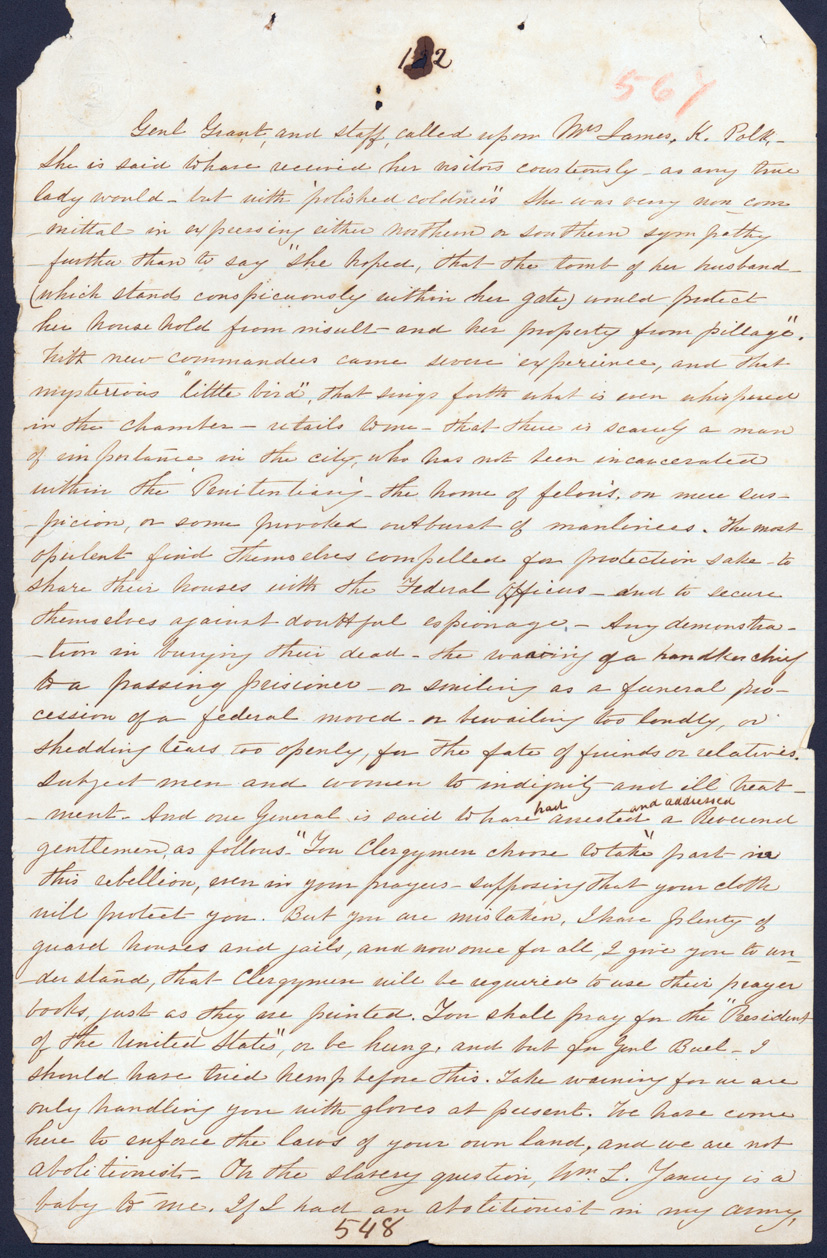 132
567
Genl Grant, and staff, called upon Mrs James, K. Polk,-
She is said to have received her visitors courteously - as any true
lady would - but with "polished coldness" She was very non com
-mittal in expressing either northern or southern sympathy
further than to say "She hoped, that the tomb of her husband-
(which stands conspicuously within her gate) would protect
her house hold from insult - and her property from pillage".
With new commanders came severe experience, and that
mysterious "little bird", that sings forth what is even whispered
in the chamber - retails to me - that there is scarcely a man
of importance in the city, who has not been incarcerated
within the Penitentiary - the home of felons. on mere sus-
-picion, or some provoked outburst of manliness. The most
opulent find themselves compelled for protection sake - to
share their houses with the Federal Officers - and to secure
themselves against doubtful espionage. - Any demonstra-
-tion in burying their dead - the waving of a handkerchief
to a passing prisioner - or smiling as a funeral pro-
cession of a federal moved - or bewailing too loudly, or
shedding tears too openly, for the fate of friends or relatives.
subject men and women to indignity and ill treat-
-ment. And one General is said to have had arrested and addressed a Reverend
gentlemen, as follows. "You Clergymen choose to take" part in
this rebellion, even in your prayers - supposing that your cloth
will protect you. But you are mistaken, I have plenty of
guard houses and jails, and now once for all, I give you to un-
-derstand, that Clergymen will be required to use their prayer
books, just as they are printed. You shall pray for the "President
of the United States", or be hung, and but for Genl Buel - I
should have tried hemp before this. Take warning for we are
only handling you with gloves at present. We have come
here to enforce the laws of your own land, and we are not
abolitionists - On the slavery question, Wm. L. Yancey is a
baby to me. If I had an abolitionist in my army,
548